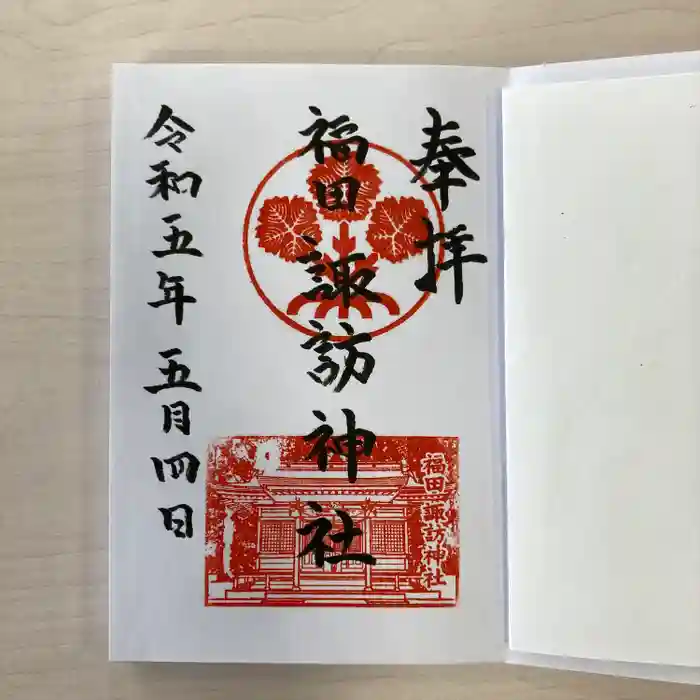 奉拝
福田諏訪神社
福田諏訪神社
令和五年五月四日